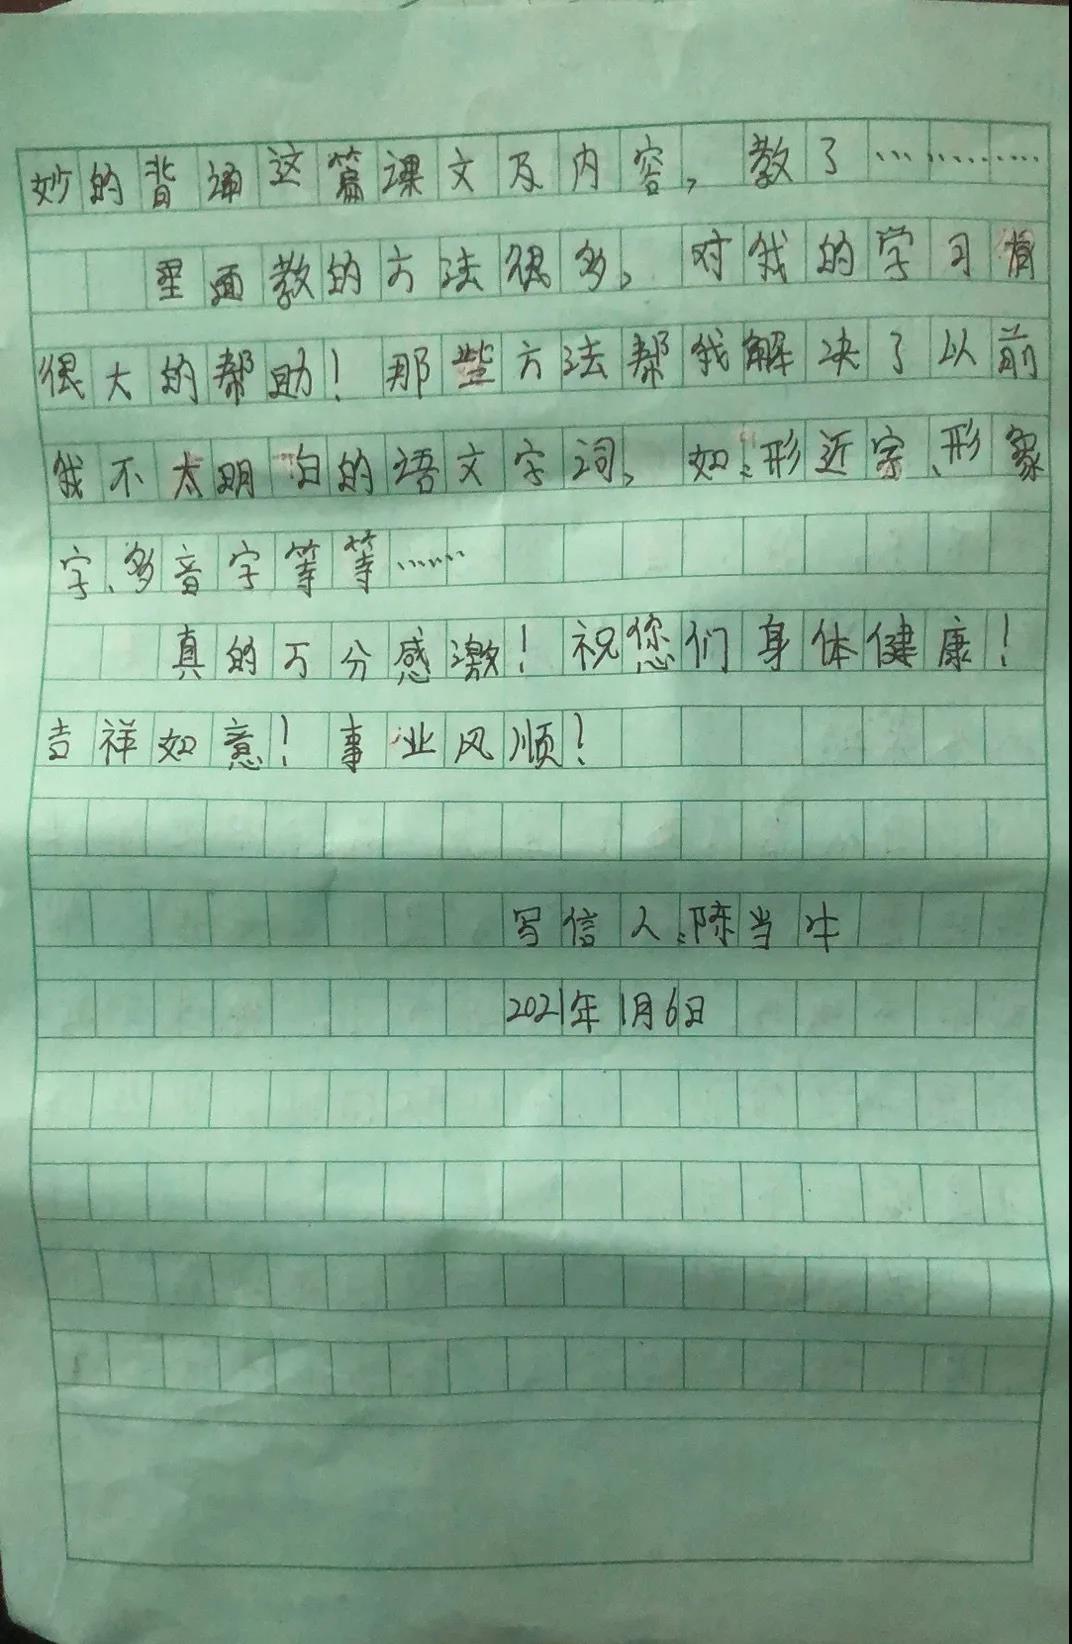 妙的背诵这篇课文及内容，教了…………
里面教的方法很多，对我的学习有
很大的帮助！那些方法帮我解决了以前
我不太明白的语文字词，如：形近字、形象
字、多音字等等……
真的万分感激！祝您们身体健康！
吉祥如意！事业风顺！
写信人：陈当牛
2021年1月6日